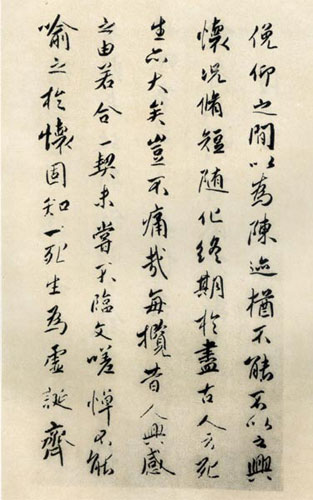 俛仰之間以為陳迹猶不能不以之興
懷況脩短随化终期於盡古人云死
生亦大矣豈不痛哉每攬昔人興感
之由若合一契未嘗不臨文嗟悼不能
喻之於懷固知一死生為虛誕齊